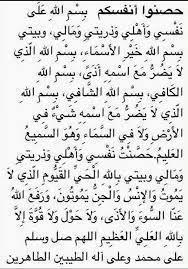 حصنوا أنفسكم بِسْمِ اللهِ عَلَى
نَفْسِي وَأَهْلِي وَذُرِّيتِي وَمَالِي، وَبِيتِي
بِسْمِ اللهِ خَيْرِ الأَسْمَاءِ، بِسْمِ اللهِ الَّذِي
لَا يَضُرُّ مَعَ اسْمِهِ أَذَىً، بِسْمِ اللهِ
الكَافِي، بِسْمِ اللهِ الشَّافِي، بِسْمِ اللهِ
الَّذِي لَا يَضُرُّ مَعَ اسْمِهِ شَيْءٌ فِي
الأَرْضِ وَلَا فِي السَّمَاءِ وَهُوَ السَّمِيعُ
العَلِيمُ، حَصَّنْتُ نَفْسِي وَأَهْلِي وَذُرِّيتِي
وَمَالِي وَبِيتِي بِاللهِ الحَيِّ القَيُّومِ الَّذِي لَا
يَمُوتُ وَالإِنْسُ وَالْجِنُّ يَمُوتُونَ، وَرَفَعَ اللهُ
عَنَّا السُّوءَ وَالأَذَى، وَلَا حَوْلَ وَلَا قُوَّةَ إِلَّا
بِاللهِ العَلِيِّ العَظِيمِ اللهم صل وسلم
على محمد وعلى اله الطيبين الطاهرين